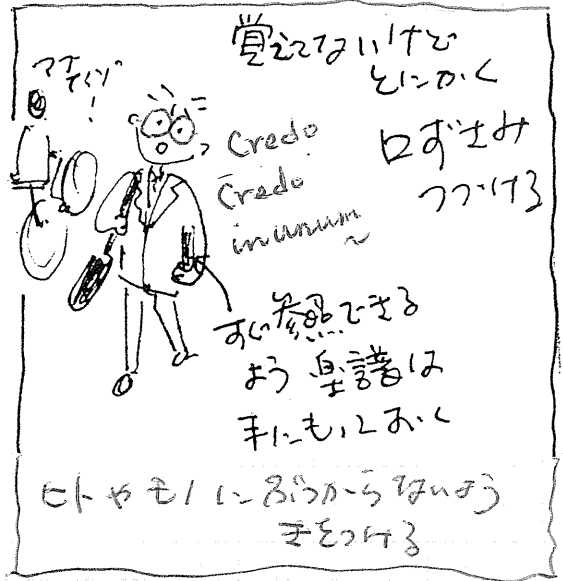 覚えてないけど
とにかく
口ずさみ
つづける
アブナイゾ!
Credo
Credo
in unum~
すぐ参照できる
よう楽譜は
手にもっておく
ヒトやモノにぶつからないよう
きをつける